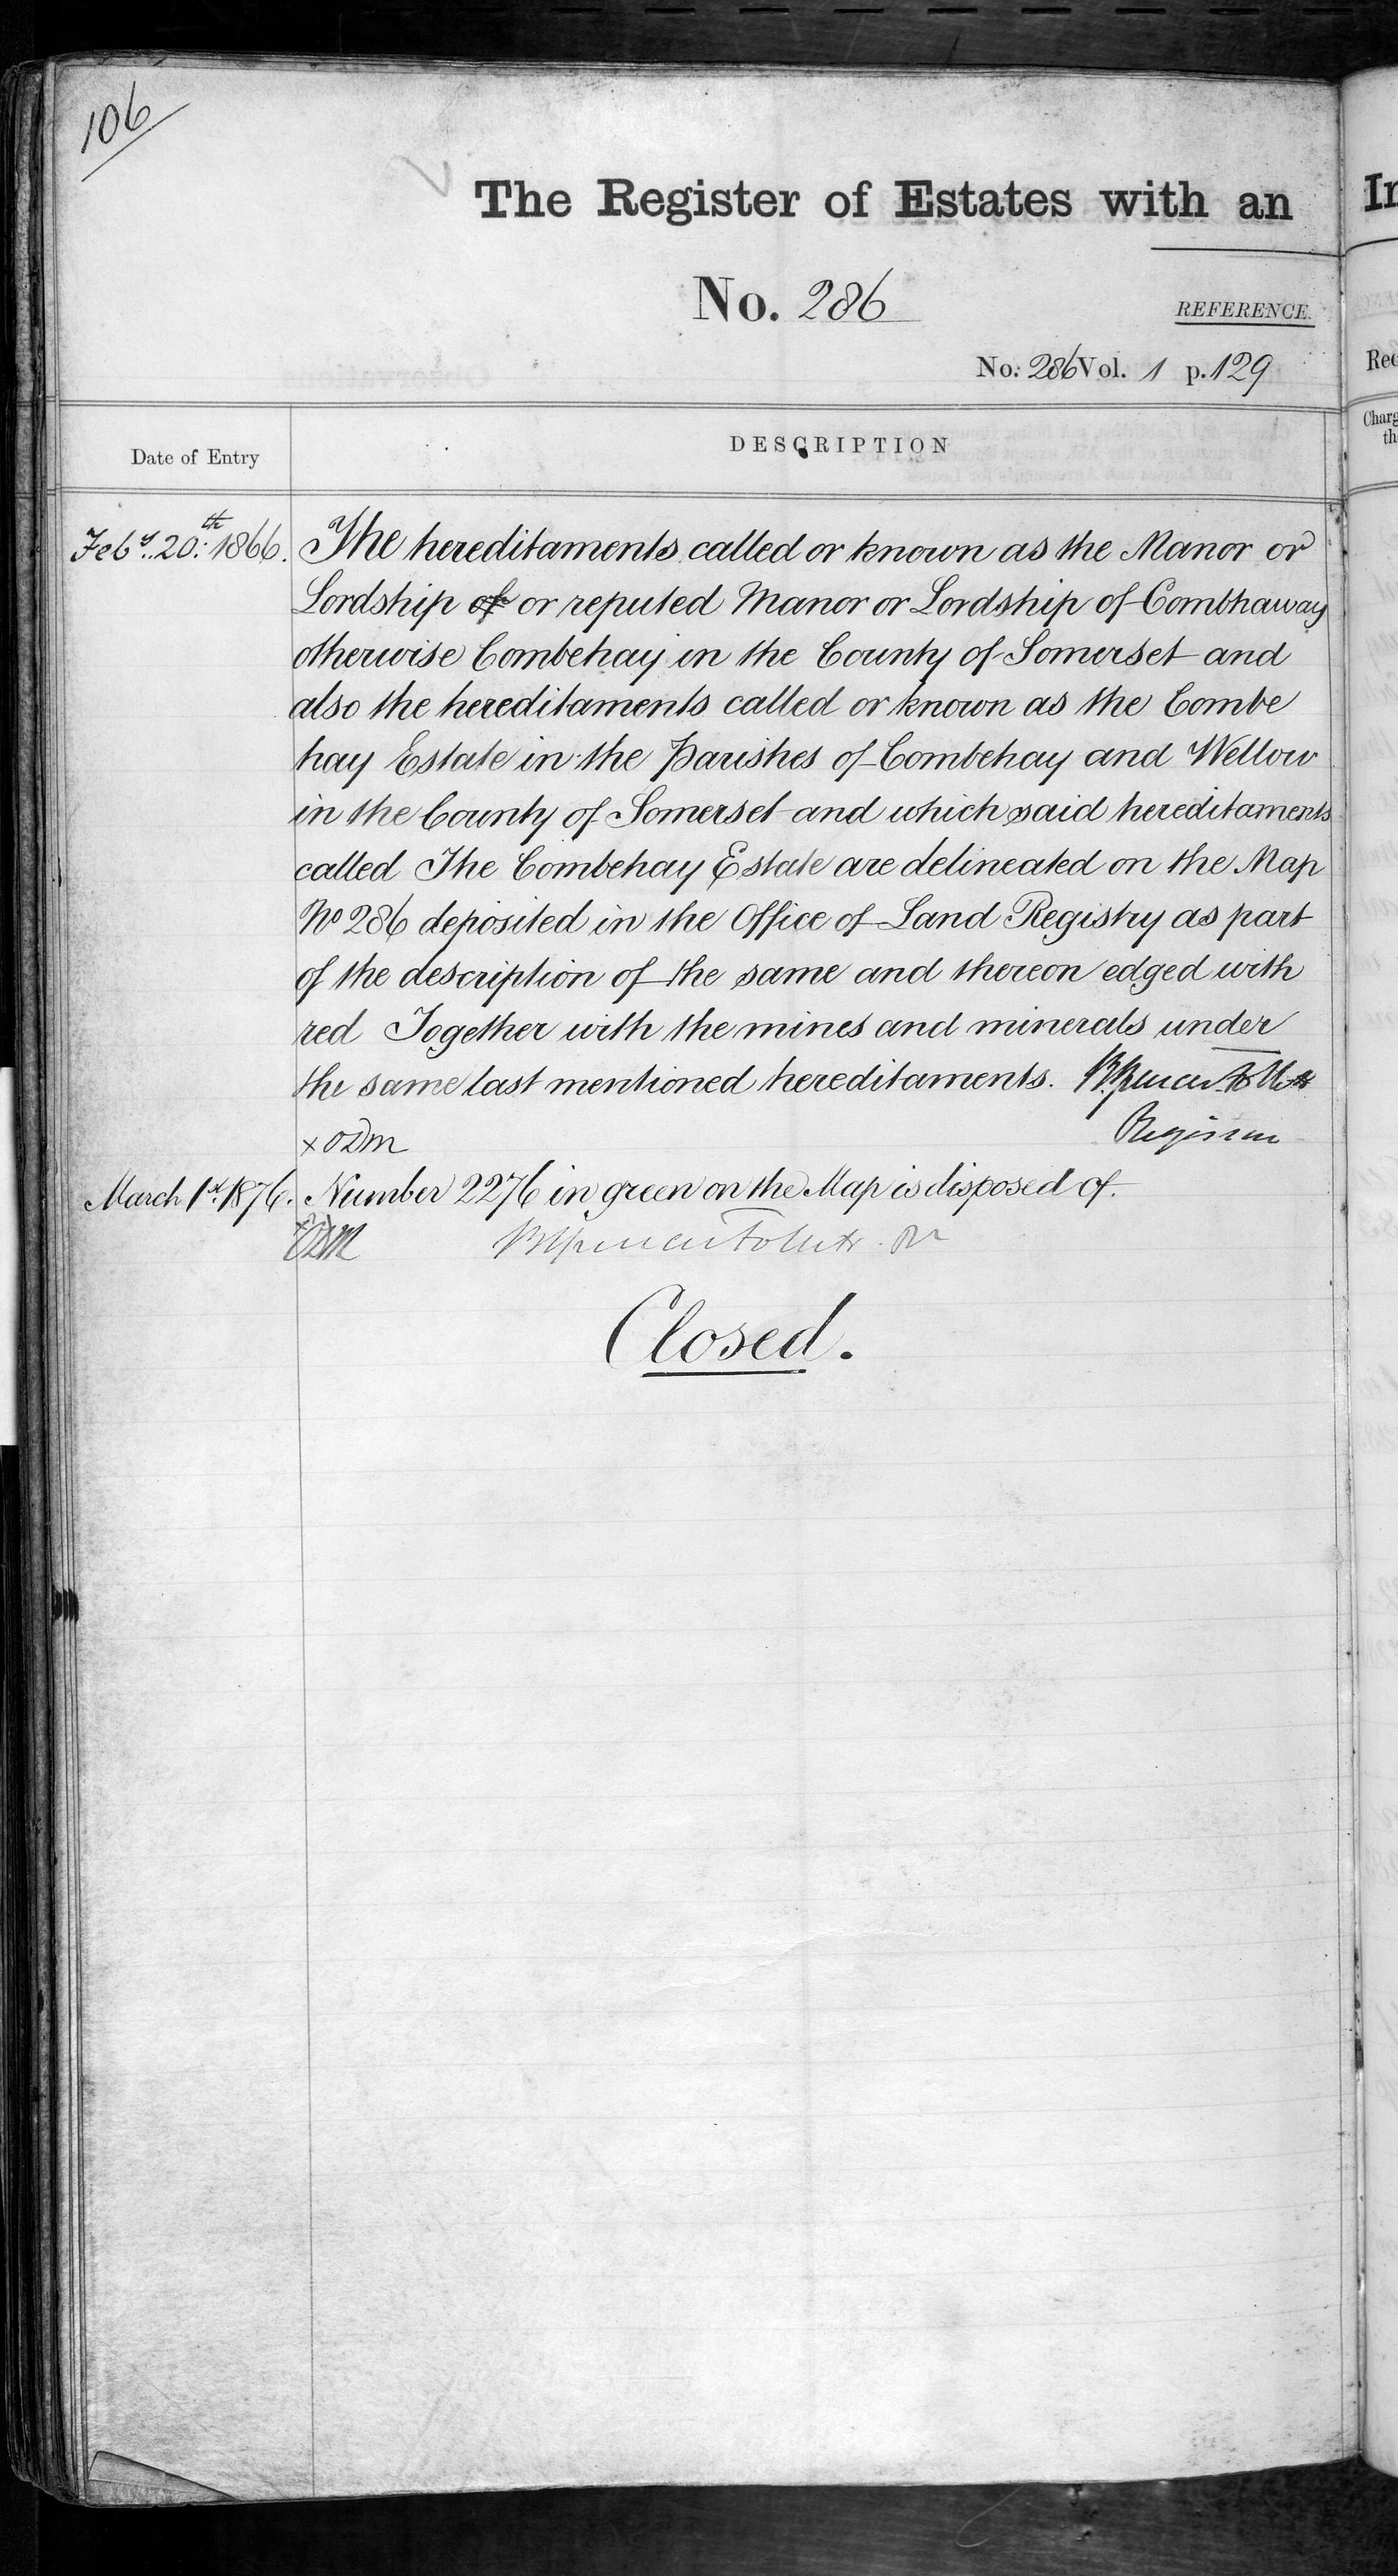 106
The Register of Estates with an
In
No. 286
REFERENCE.
No: 286 Vol. 1 p. 129
Rec
Date of Entry
DESCRIPTION
Charg
th
Feby. 20th: 1866.
The hereditaments called or known as the Manor or
Lordship of or reputed Manor or Lordship of Combhaway
otherwise Combehay in the County of Somerset and
also the hereditaments called or known as the Combe
hay Estate in the Parishes of Combehay and Wellow
in the County of Somerset and which said hereditaments
called The Combehay Estate are delineated on the Map
No 286 deposited in the Office of Land Registry as part
of the description of the same and thereon edged with
red Together with the mines and minerals under
the same last mentioned hereditaments. Brent Spencer Follett
Registrar
x ODM
March 1st. 1876. Number 2276 in green on the Map is disposed of.
ODM
Closed.